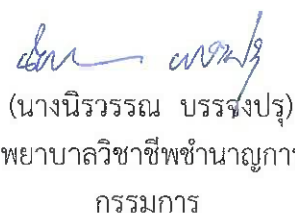 (นางนิรวรรณ บรรจงปรุ)
พยาบาลวิชาชีพชำนาญการ
กรรมการ